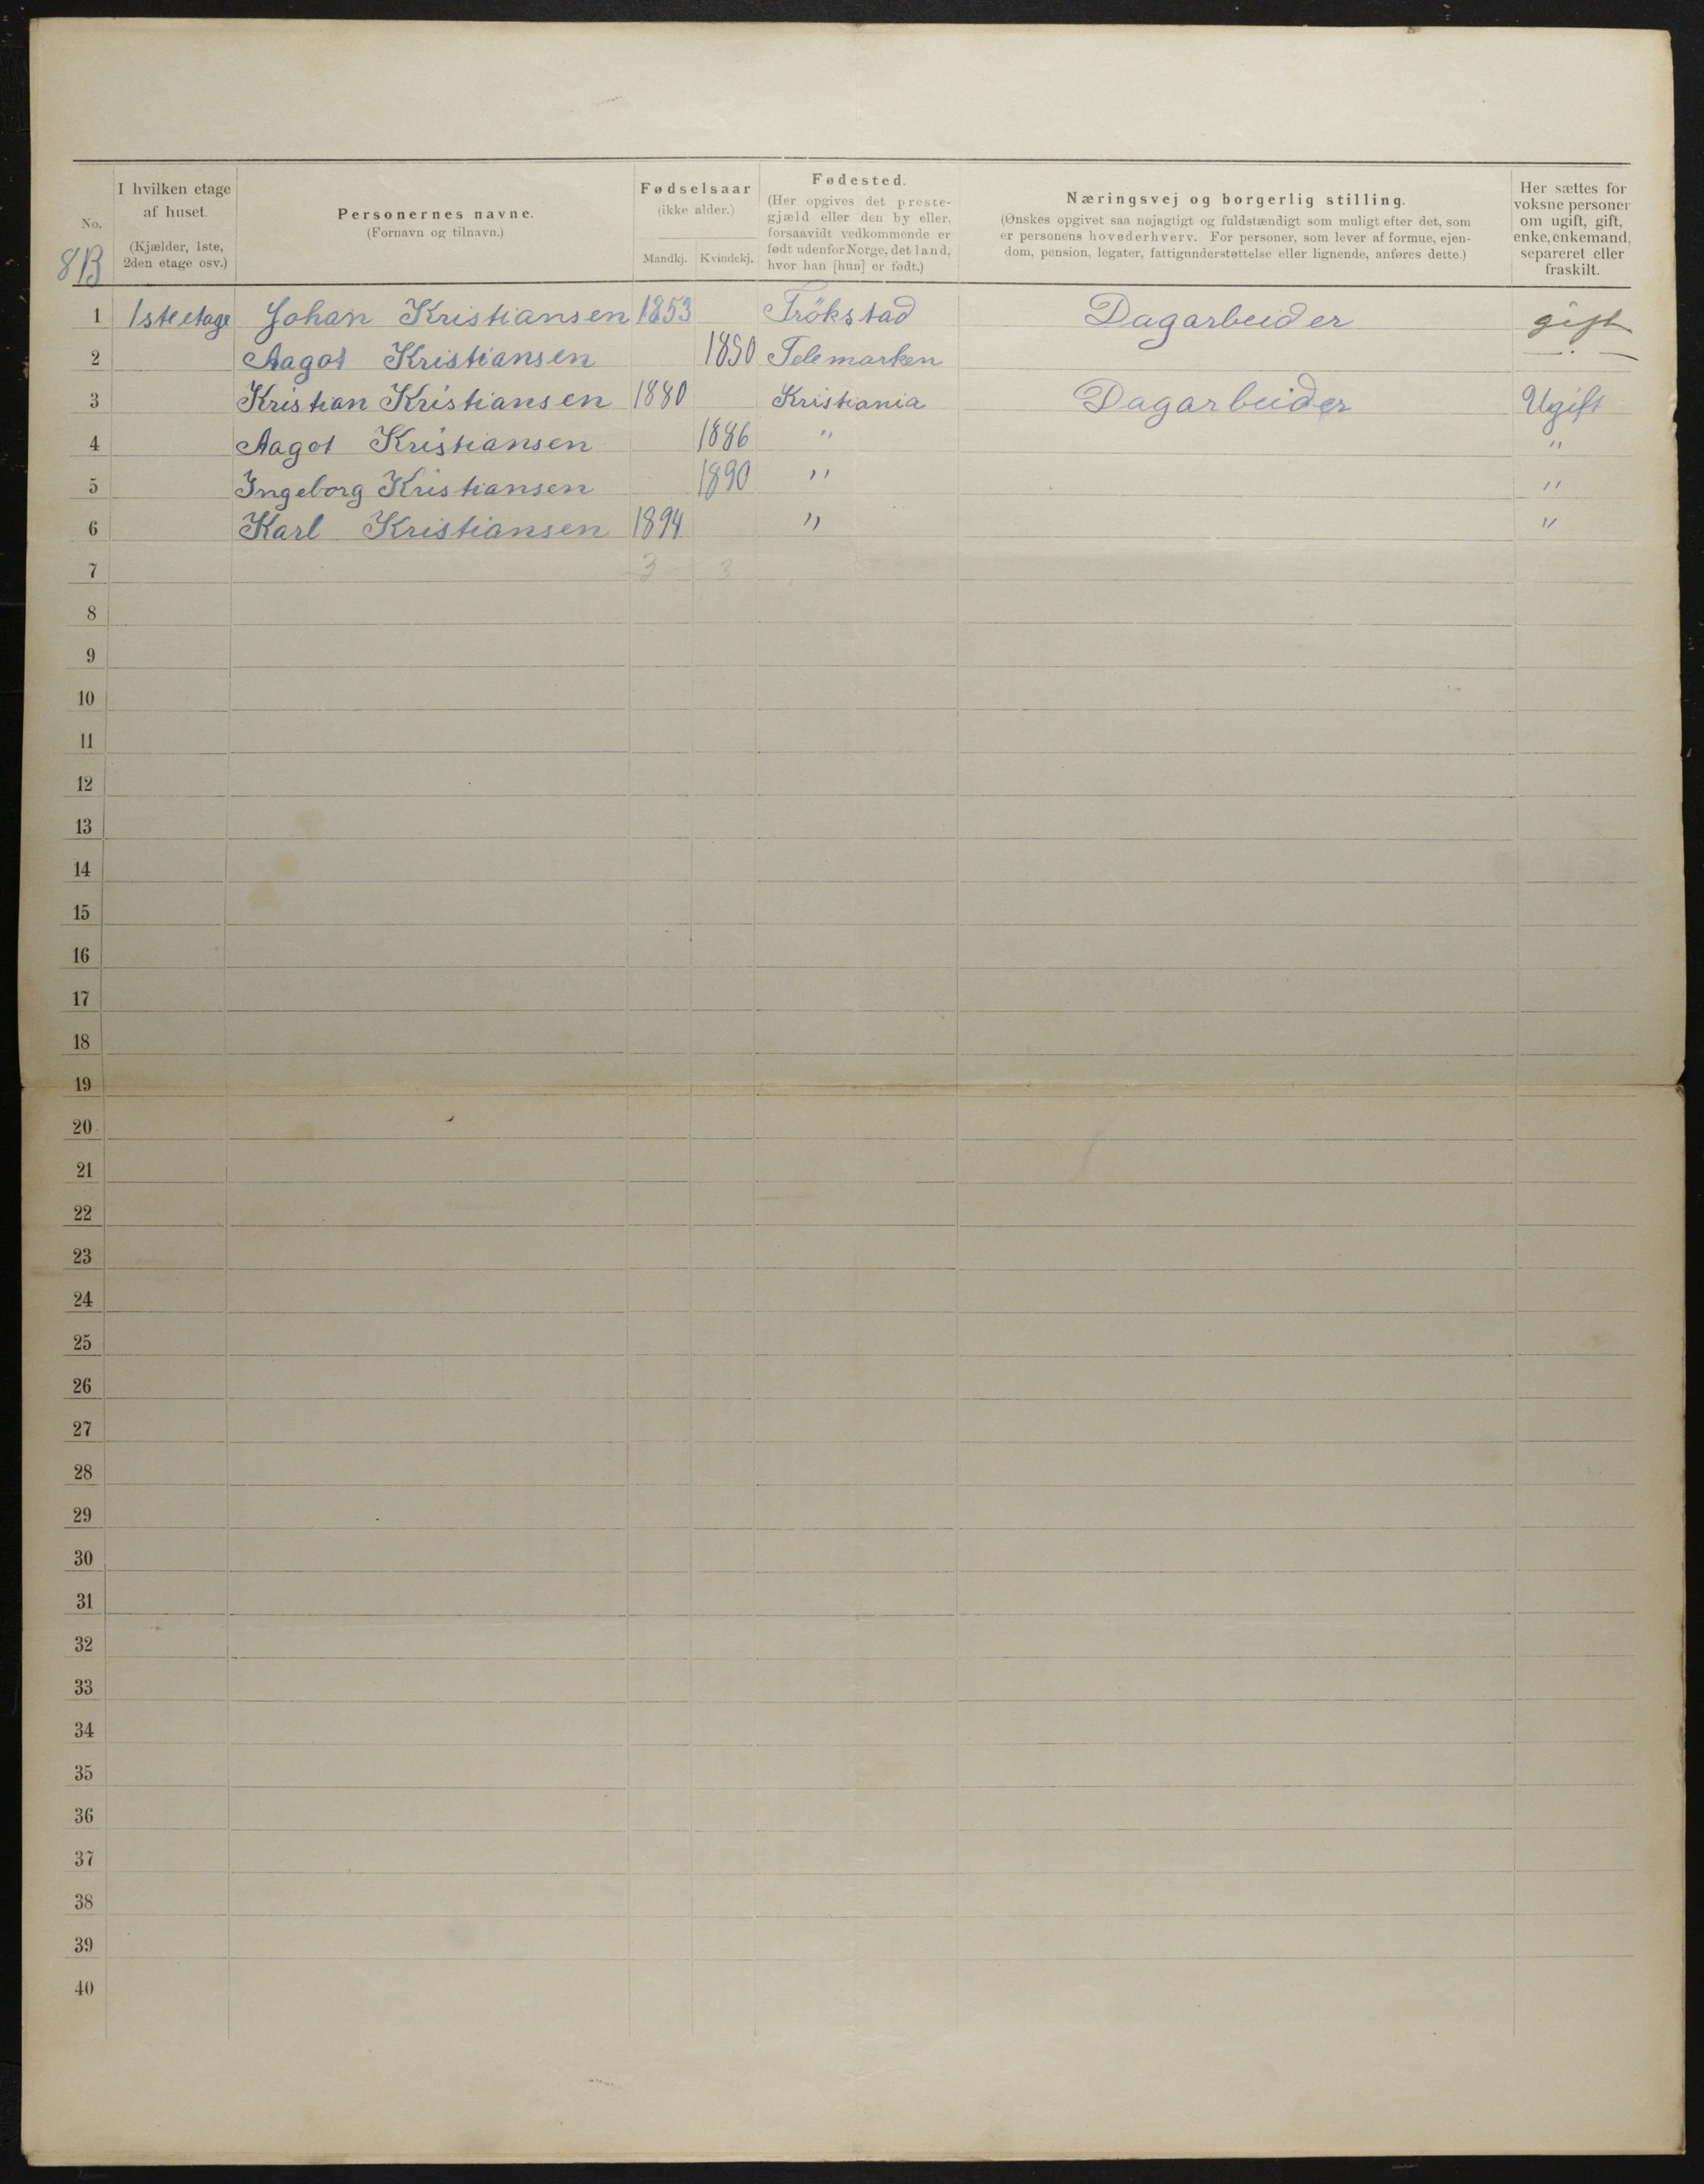 No.
I hvilken etage
af huset.
(Kjælder, 1ste,
2den etage osv.)
Personernes navne.
(Fornavn og tilnavn.)
Fødselsaar
(ikke alder.)
Mandkj. Kvindekj.
Fødested.
(Her opgives det preste-
gjæld eller den by eller,
forsaavidt vedkommende er
født udenfor Norge, det land,
hvor han [hun] er født.)
Næringsvej og borgerlig stilling.
(Ønskes opgivet saa nøjagtigt og fuldstændigt som muligt efter det, som
er personens hovederhverv. For personer, som lever af formue, ejen-
dom, pension, legater, fattigunderstøttelse eller lignende, anføres dette.)
Her sættes for
voksne personer
om ugift, gift,
enke, enkemand,
separeret eller
fraskilt.
8B
1 1ste etage Johan Kristiansen 1853 Trökstad Dagarbeider gift
2 Aagot Kristiansen 1850 Telemarken —·—
3 Kristian Kristiansen 1880 Kristiania Dagarbeider Ugift
4 Aagot Kristiansen 1886 " "
5 Ingeborg Kristiansen 1890 " "
6 Karl Kristiansen 1894 " "
7 3 3
8
9
10
11
12
13
14
15
16
17
18
19
20
21
22
23
24
25
26
27
28
29
30
31
32
33
34
35
36
37
38
39
40